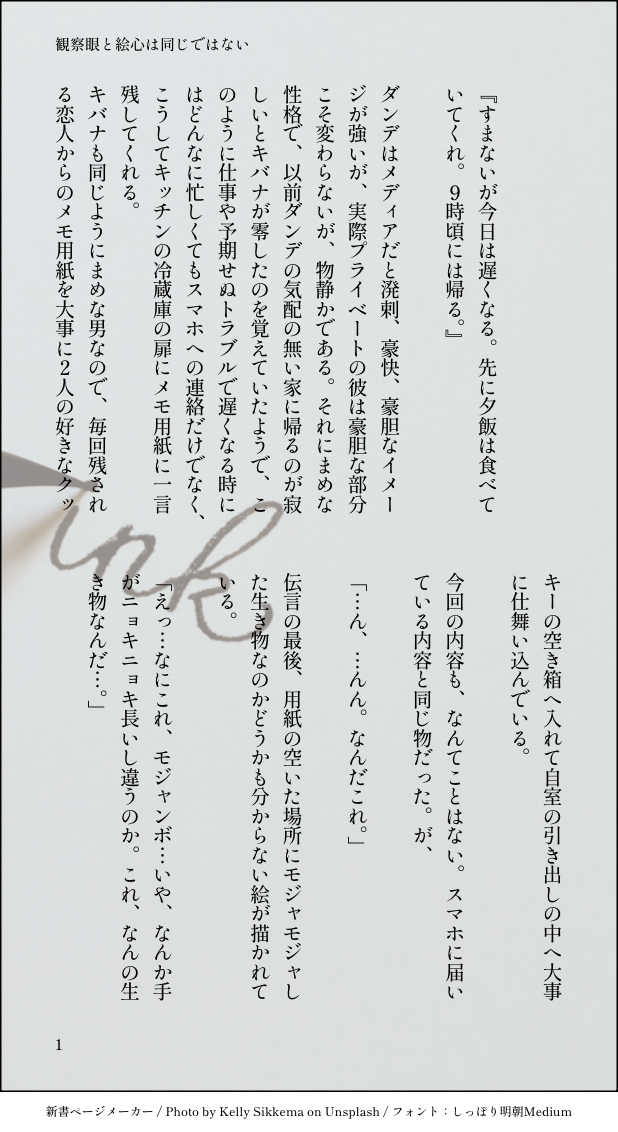 観察眼と絵心は同じではない
『すまないが今日は遅くなる。先に夕飯は食べて
いてくれ。９時頃には帰る。』
ダンデはメディアだと溌剌、豪快、豪胆なイメー
ジが強いが、実際プライベートの彼は豪胆な部分
こそ変わらないが、物静かである。それにまめな
性格で、以前ダンデの気配の無い家に帰るのが寂
しいとキバナが零したのを覚えていたようで、こ
のように仕事や予期せぬトラブルで遅くなる時に
はどんなに忙しくてもスマホへの連絡だけでなく、
こうしてキッチンの冷蔵庫の扉にメモ用紙に一言
残してくれる。
キバナも同じようにまめな男なので、毎回残され
る恋人からのメモ用紙を大事に２人の好きなクッ
キーの空き箱へ入れて自室の引き出しの中へ大事
に仕舞い込んでいる。
今回の内容も、なんてことはない。スマホに届い
ている内容と同じ物だった。が、
「…ん、…んん。なんだこれ。」
伝言の最後、用紙の空いた場所にモジャモジャし
た生き物なのかどうかも分からない絵が描かれて
いる。
「えっ…なにこれ、モジャンボ…いや、なんか手
がニョキニョキ長いし違うのか。これ、なんの生
き物なんだ…。」
ink
1
新書ページメーカー / Photo by Kelly Sikkema on Unsplash / フォント：しっぽり明朝Medium